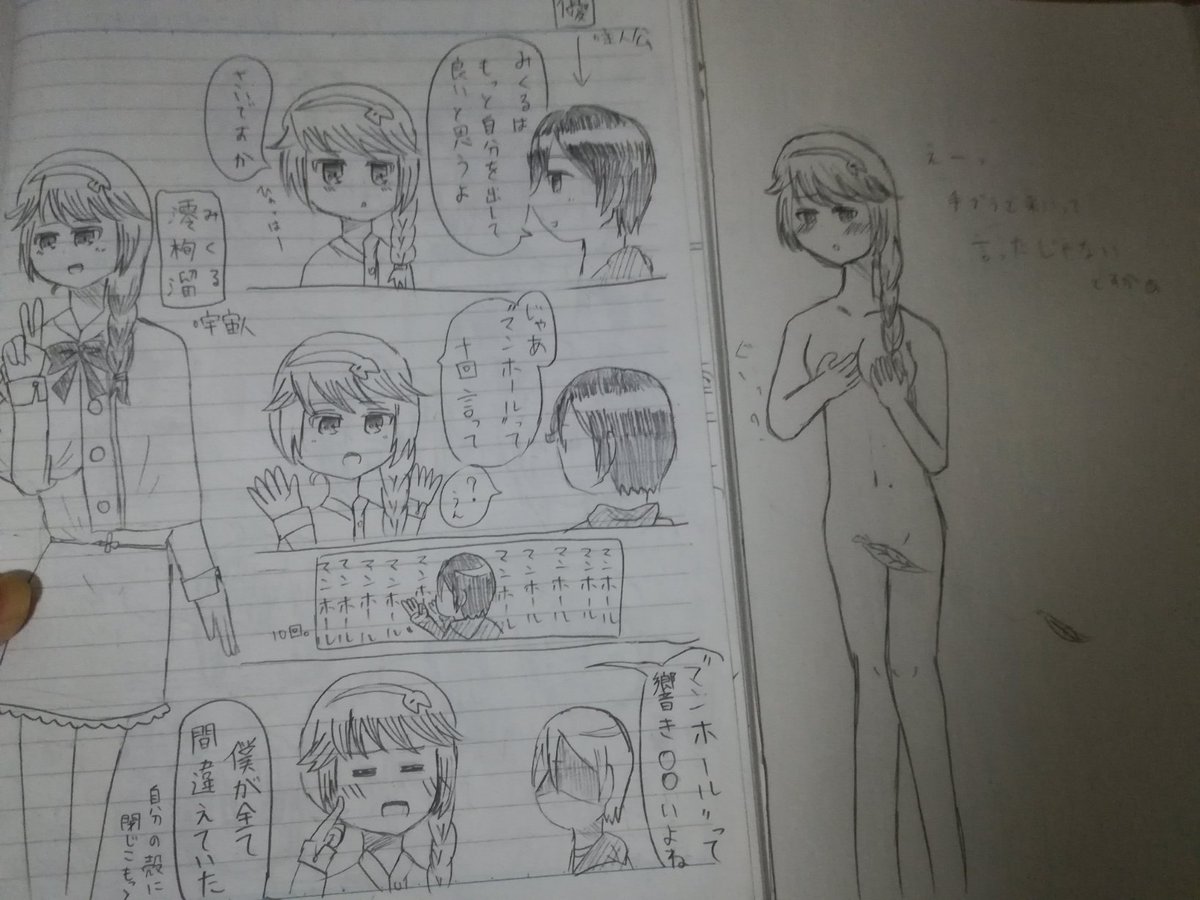 主人公
みくるは
もっと自分を出して
良いと思うよ
さいですか
ひゃっはー
みくる
澪枸溜
宇宙人
じゃあ
"マンホール"って
十回言って
?!
ええ
マンホール
マンホール
マンホール
マンホール
マンホール
マンホ
マンホール
マンホール
マンホール
マンホール
10回。
"マンホール"って
響き〇〇いよね
僕が全て
間違えていた
自分の殻に
閉じこもっ
えー、
言ったじゃない
ですかぁ